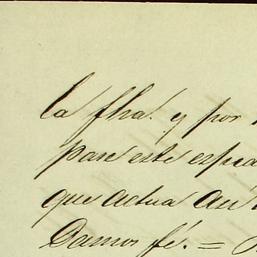 la fha. y por
pase este espe
que actua au
Damos fé. =